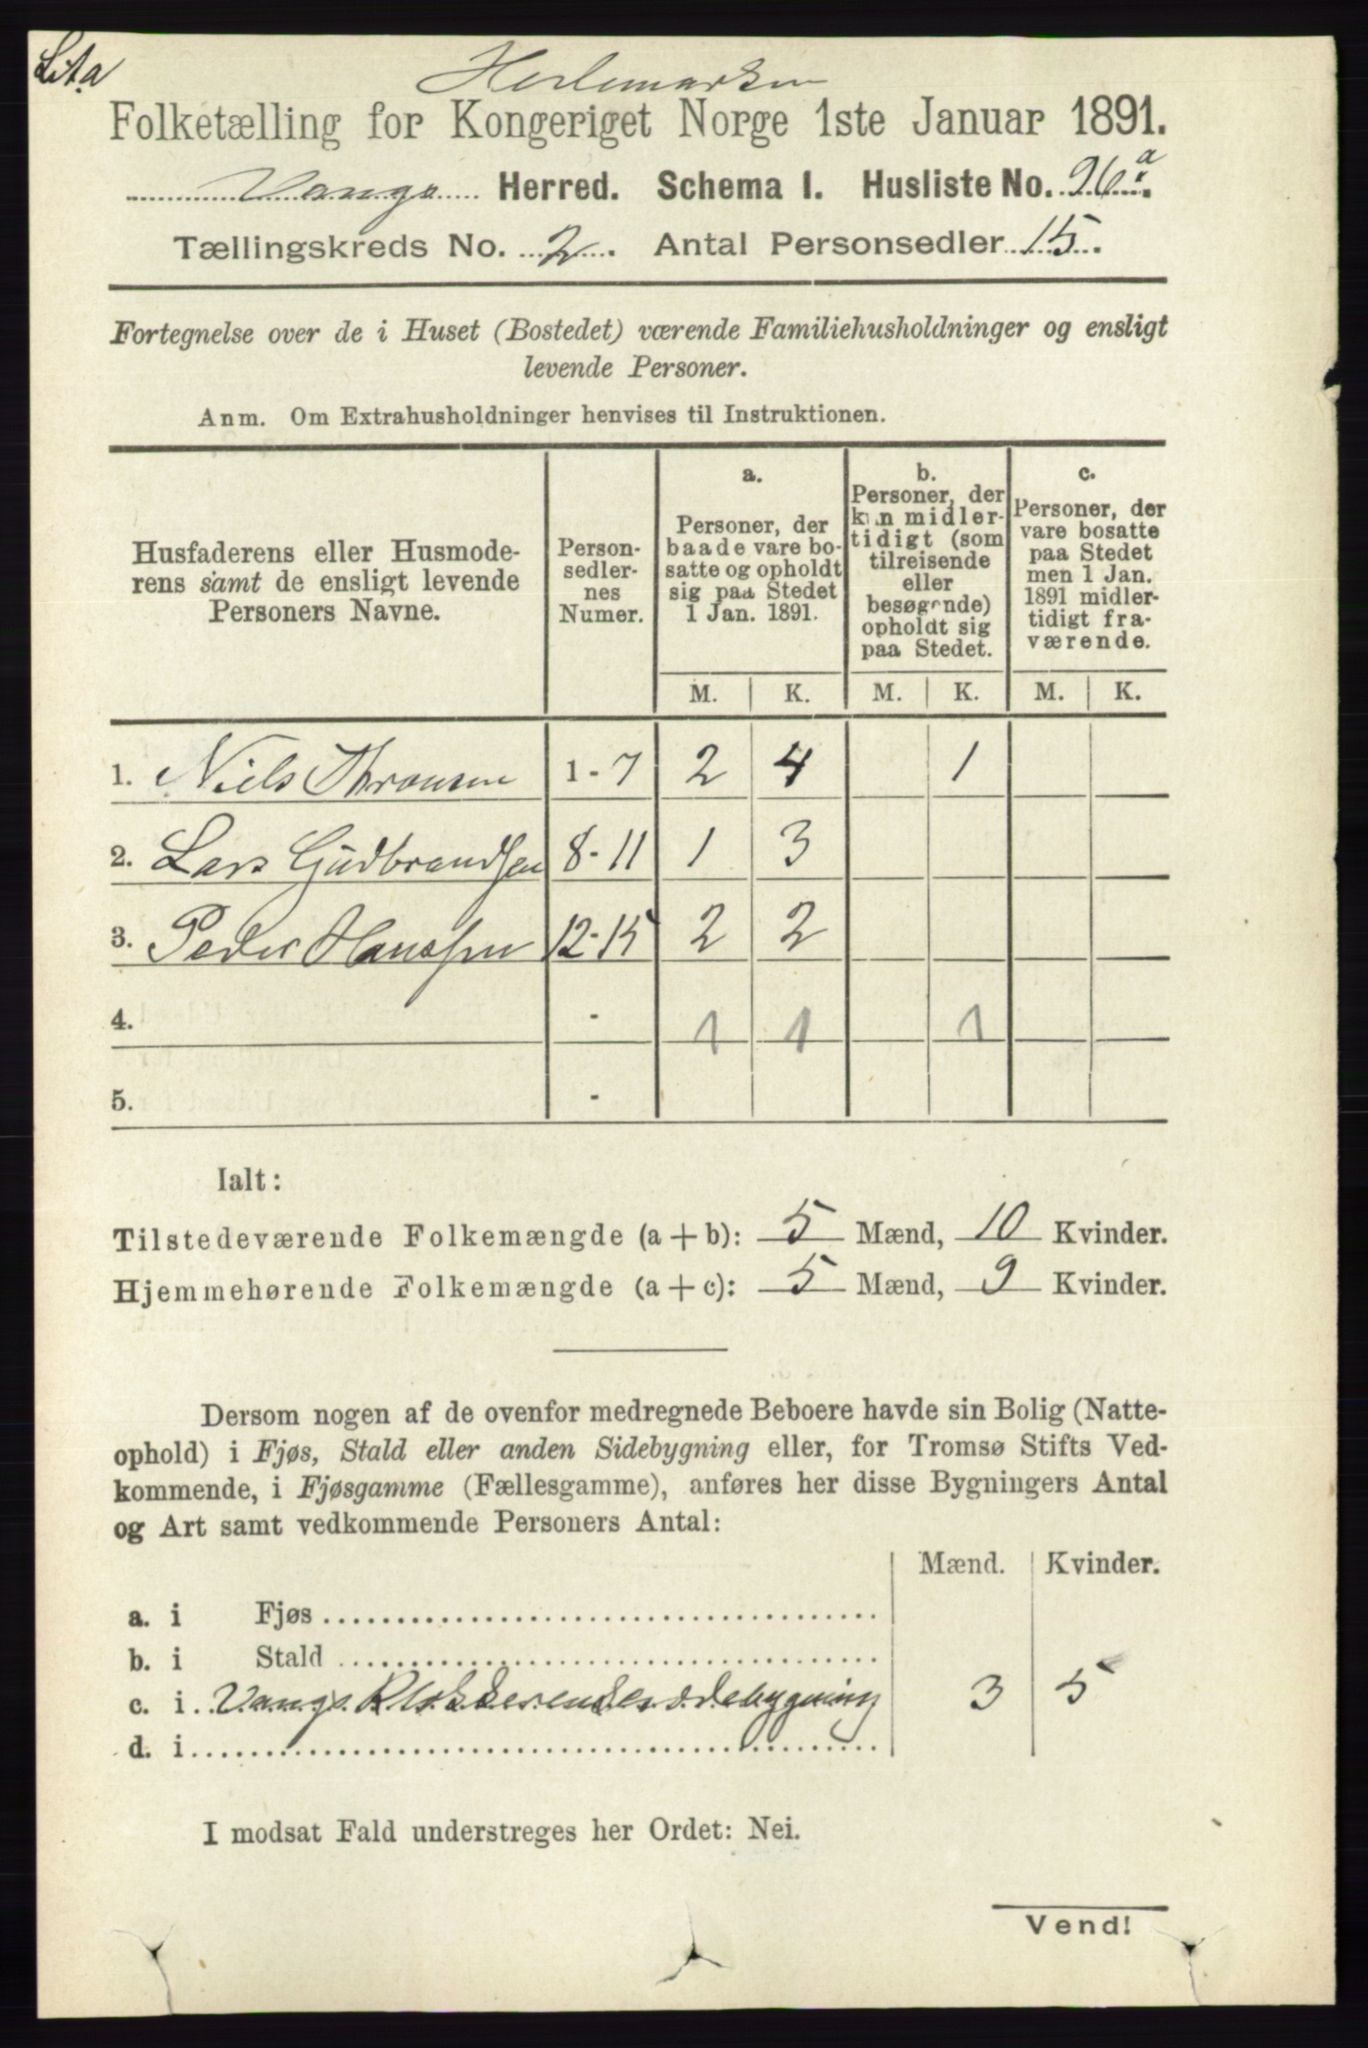 Lit a
Hedemarken
Folketælling for Kongeriget Norge 1ste Januar 1891.
Vangs Herred. Schema I. Husliste No. 26 a.
Tællingskreds No. 2. Antal Personsedler 15.
Fortegnelse over de i Huset (Bostedet) værende Familiehusholdninger og ensligt
levende Personer.
Anm. Om Extrahusholdninger henvises til Instruktionen.
Husfaderens eller Husmode-
rens samt de ensligt levende
Personers Navne.
Person-
sedler-
nes
Numer.
a.
Personer, der
baade vare bo-
satte og opholdt
sig paa Stedet
1 Jan. 1891.
b.
Personer, der
kun midler-
tidigt (som
tilreisende
eller
besøgende)
opholdt sig
paa Stedet.
c.
Personer, der
vare bosatte
paa Stedet
men 1 Jan.
1891 midler-
tidigt fra-
værende.
M. K. M. K. M. K.
1. Niels Thronsen 1-7 2 4 1
2. Lars Gudbrandsen 8-11 1 3
3. Peder Hanssen 12-15 2 2
4. - 1 1 1
5. -
Ialt:
Tilstedeværende Folkemængde (a + b): 5 Mænd, 10 Kvinder.
Hjemmehørende Folkemængde (a + c): 5 Mænd, 9 Kvinder.
Dersom nogen af de ovenfor medregnede Beboere havde sin Bolig (Natte-
ophold) i Fjøs, Stald eller anden Sidebygning eller, for Tromsø Stifts Ved-
kommende, i Fjøsgamme (Fællesgamme), anføres her disse Bygningers Antal
og Art samt vedkommende Personers Antal:
Mænd. Kvinder.
a. i Fjøs
b. i Stald
c. i Vangs sidebygning 3 5
d. i
I modsat Fald understreges her Ordet: Nei.
Vend!